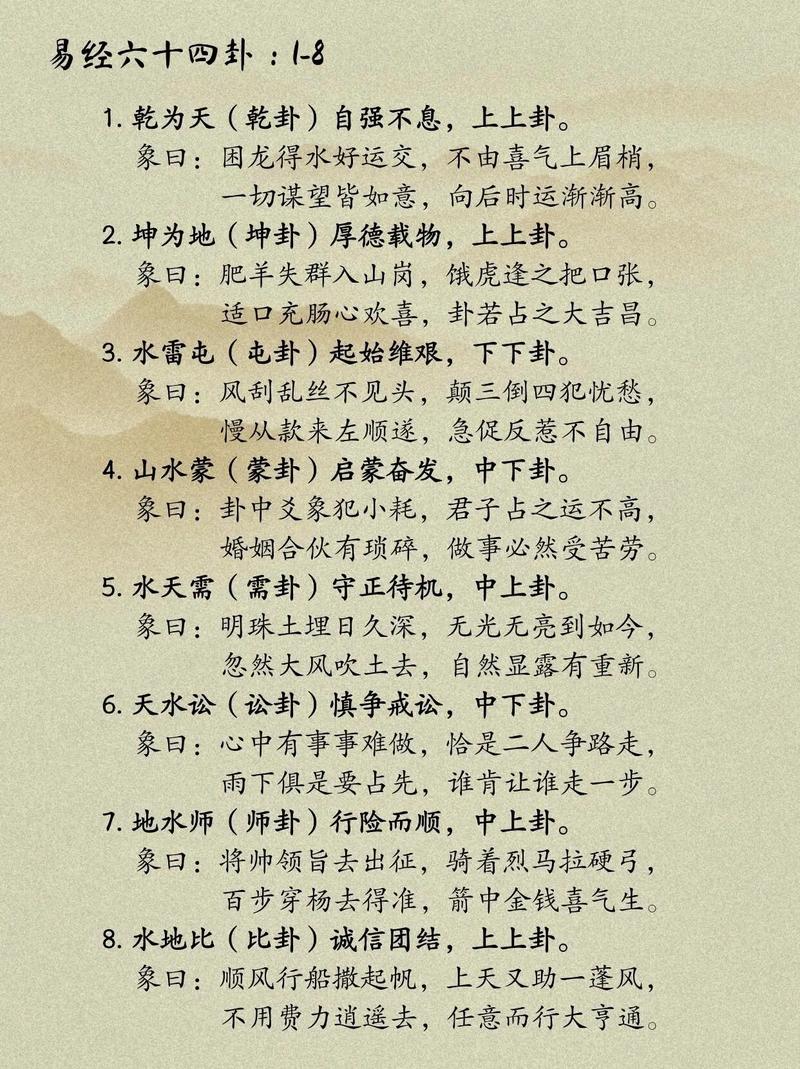 易经六十四卦：1-8
1. 乾为天（乾卦）自强不息，上上卦。
象曰：困龙得水好运交，不由喜气上眉梢，
一切谋望皆如意，向后时运渐渐高。
2. 坤为地（坤卦）厚德载物，上上卦。
象曰：肥羊失群入山岗，饿虎逢之把口张，
适口充肠心欢喜，卦若占之大吉昌。
3. 水雷屯（屯卦）起始维艰，下下卦。
象曰：风刮乱丝不见头，颠三倒四犯忧愁，
慢从款来左顺遂，急促反惹不自由。
4. 山水蒙（蒙卦）启蒙奋发，中下卦。
象曰：卦中爻象犯小耗，君子占之运不高，
婚姻合伙有琐碎，做事必然受苦劳。
5. 水天需（需卦）守正待机，中上卦。
象曰：明珠土埋日久深，无光无亮到如今，
忽然大风吹土去，自然显露有重新。
6. 天水讼（讼卦）慎争戒讼，中下卦。
象曰：心中有事事难做，恰是二人争路走，
雨下俱是要占先，谁肯让谁走一步。
7. 地水师（师卦）行险而顺，中上卦。
象曰：将帅领旨去出征，骑着烈马拉硬弓，
百步穿杨去得准，箭中金钱喜气生。
8. 水地比（比卦）诚信团结，上上卦。
象曰：顺风行船撒起帆，上天又助一蓬风，
不用费力逍遥去，任意而行大亨通。